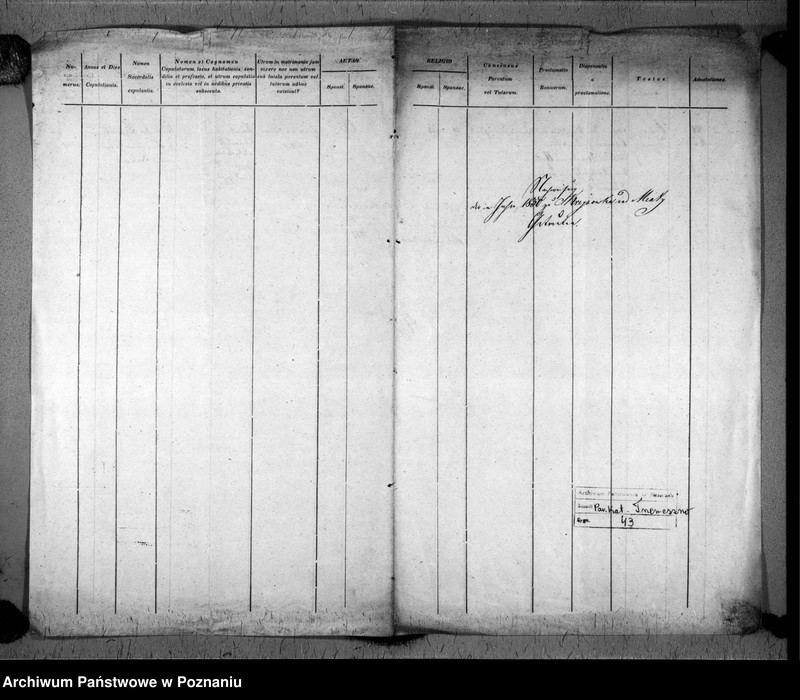 Nu-
merus.
Annus et Dies
Copulationis.
Nomen
Sacerdotis
copulantis.
Nomen et Cognomen
Copulatorum, locus habitationis, con-
ditio et professio, et utrum copulatio
in ecclesia vel in aedibus privatis
subsecuta.
Utrum in matrimonio jam
vixere nec non utrum
sub tutela parentum vel
tutorum adhuc
existunt?
AETAS
Sponsi.
Sponsae.
RELIGIO
Sponsi.
Sponsae.
Consensus
Parentum
vel Tutorum.
Proclamatio
Bannorum.
Dispensatio
a
proclamatione.
Testes.
Adnotationes.
Jahr
Archiwum Państwowe w Poznaniu
Par. kat. Trzemeszno
43
Archiwum Państwowe w Poznaniu